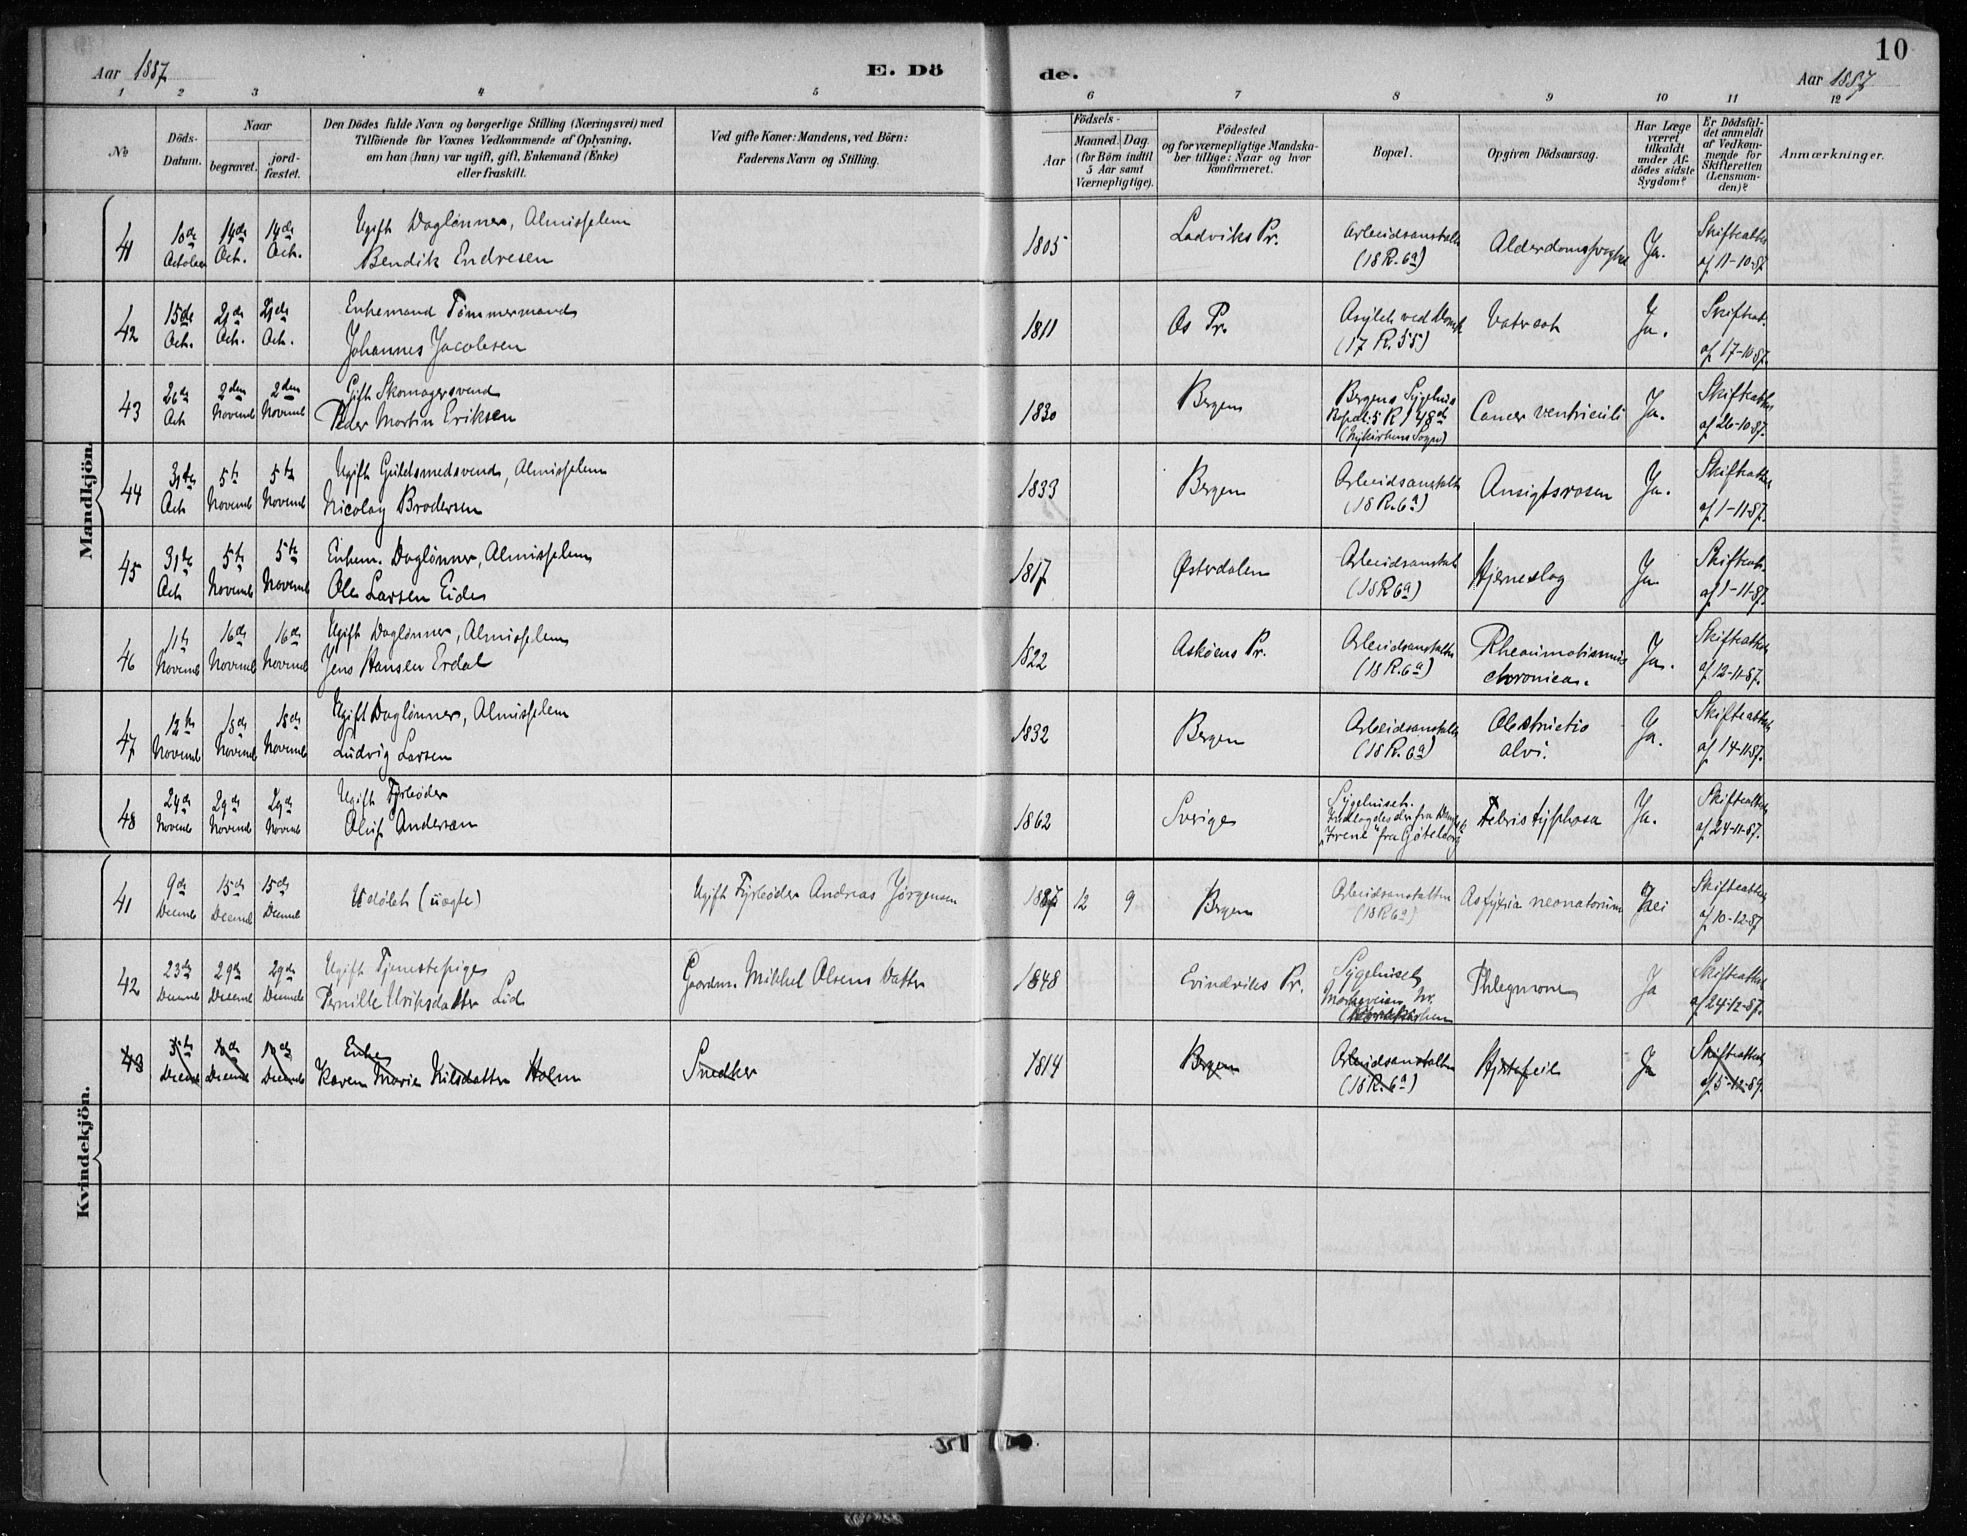 10
Aar 1887
E. Dö
de.
Aar 1887
1 2 3 4 5 6 7 8 9 10 11 12
№
Döds-
Datum.
Naar
begravet.
jord-
fæstet.
Den Dödes fulde Navn og borgerlige Stilling (Næringsvei) med
Tilföiende for Voxnes Vedkommende af Oplysning,
om han (hun) var ugift, gift, Enkemand (Enke)
eller fraskilt.
Ved gifte Koner: Mandens, ved Börn:
Faderens Navn og Stilling.
Födsels-
Aar
Maaned. Dag.
(for Börn indtil
5 Aar samt
Værnepligtige).
Födested
og for værnepligtige Mandska-
ber tillige: Naar og hvor
konfirmeret.
Bopæl.
Opgiven Dödsaarsag.
Har Læge
været
tilkaldt
under Af-
dödes sidste
Sygdom?
Er Dödsfal-
det anmeldt
af Vedkom-
mende for
Skifteretten
(Lensman-
den)?
Anmærkninger.
Mandkjön.
41
10de October
14de Oct.
14de Oct.
Ugift Daglønner, Almisselem
Bendik Endresen
1805
Ladviks Pr.
Arbeidsanstalten
(18 R. 6a)
Alderdomssvaghed
Ja.
Skifteattest
af 11-10-87
42
15de Oct.
21de Oct.
21de Oct.
Enkemand Tømmermand
Johannes Jacobsen
1811
Os Pr.
(17 R. 55)
Vatersot
Ja.
Skifteat.
af 17-10-87.
43
26de Oct
2den Novemb
2den Novemb
Gift Skomagersvend
Peder Martin Eriksen
1830
Bergen
Bergens Sygehus
(Nykirkens Sogn)
Cancer ventriculi
Ja.
Skifteattest
af 26-10-87.
44
31te Oct
5te Novemb
5te Novemb
Ugift Guldsmedsvend, Almisselem
Nicolay Brodersen
1833
Bergen
Arbeidsanstalten
(18 R. 6a)
Ansigtsrosen
Ja.
Skifteattest
af 1-11-87.
45
31te Oct
5te Novemb
5te Novemb
Enkem. Daglønner, Almisselem
Ole Larsen Eide
1817
Østerdalen
Arbeidsanstalt
(18 R 6a)
Hjerneslag
Ja.
Skifteatt.
af 1-11-87.
46
11te Novemb
16de Novemb
16de Novemb
Ugift Daglønner, Almisselem
Jens Hansen Erdal
1822
Askøens Pr.
Arbeidsanstalten
(18 R. 6a)
Rheaumatismus
chronicus.
Ja.
Skifteattest
af 12-11-87.
47
12te Novemb
18de Novemb
18de Novemb
Ugift Daglønner, Almisselem
Ludvig Larsen
1832
Bergen
Arbeidsanstalten
(18 R. 6a)
Obstructio
alvi.
Ja.
Skifteattest
af 14-11-87.
48
24de Novemb
29de Novemb
29de Novemb
Ugift Fyrbøder
Oluf Andersen
1862
Sverige
Sygehuset.
"Irene" fra Gøteborg
Febris typhosa
Ja.
Skifteattest
af 24-11-87.
Kvindekjön.
41
9de Decemb
15de Decemb
15de Decemb
Udøbt (uægte)
Ugift Fyrbøder Andreas Jørgensen
1887 12 9
Bergen
Arbeidsanstalten
(18 R 6a)
Asfyxia neonatorum
Nei
Skifteattest
af 10-12-87
42
23de Decemb
29de Decemb
29de Decemb
Ugift Tjenestepige
Gaardm. Mikkel Olsens Datter
1848
Evindviks Pr.
Sygehuset
Phlegmone
Ja
Skifteattest
af 24-12-87.
43
Enke
Karen Marie Nilsdatter Holm
Snedker
1814
Bergen
Arbeidsanstalten
(18 R. 6a)
Hjertefeil
Ja
Skifteattest
af 5-12-89.